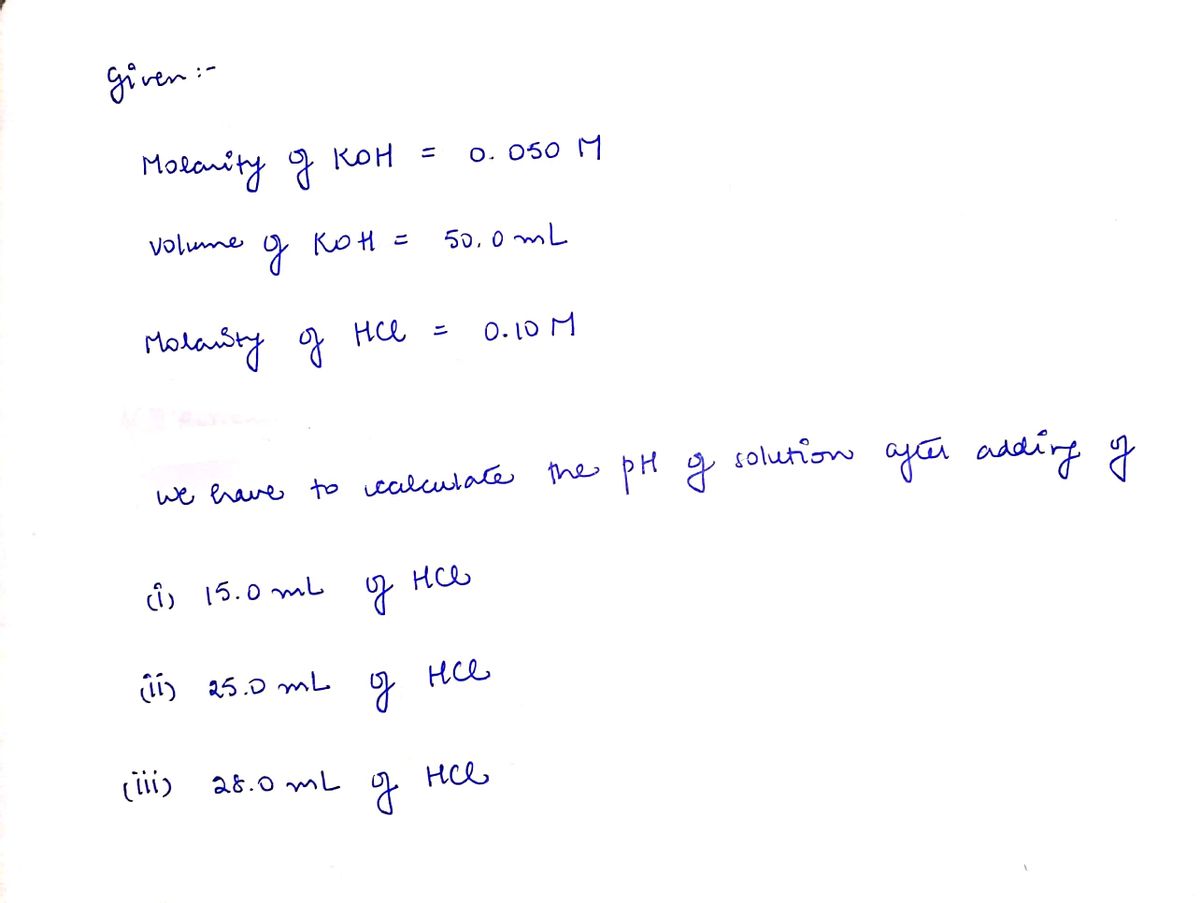 Given :-
Molarity of KOH = 0.050 M
Volume of KOH = 50.0 mL
Molarity of HCl = 0.10 M
We have to calculate the pH of solution after adding of
(i) 15.0 mL of HCl
(ii) 25.0 mL of HCl
(iii) 28.0 mL of HCl